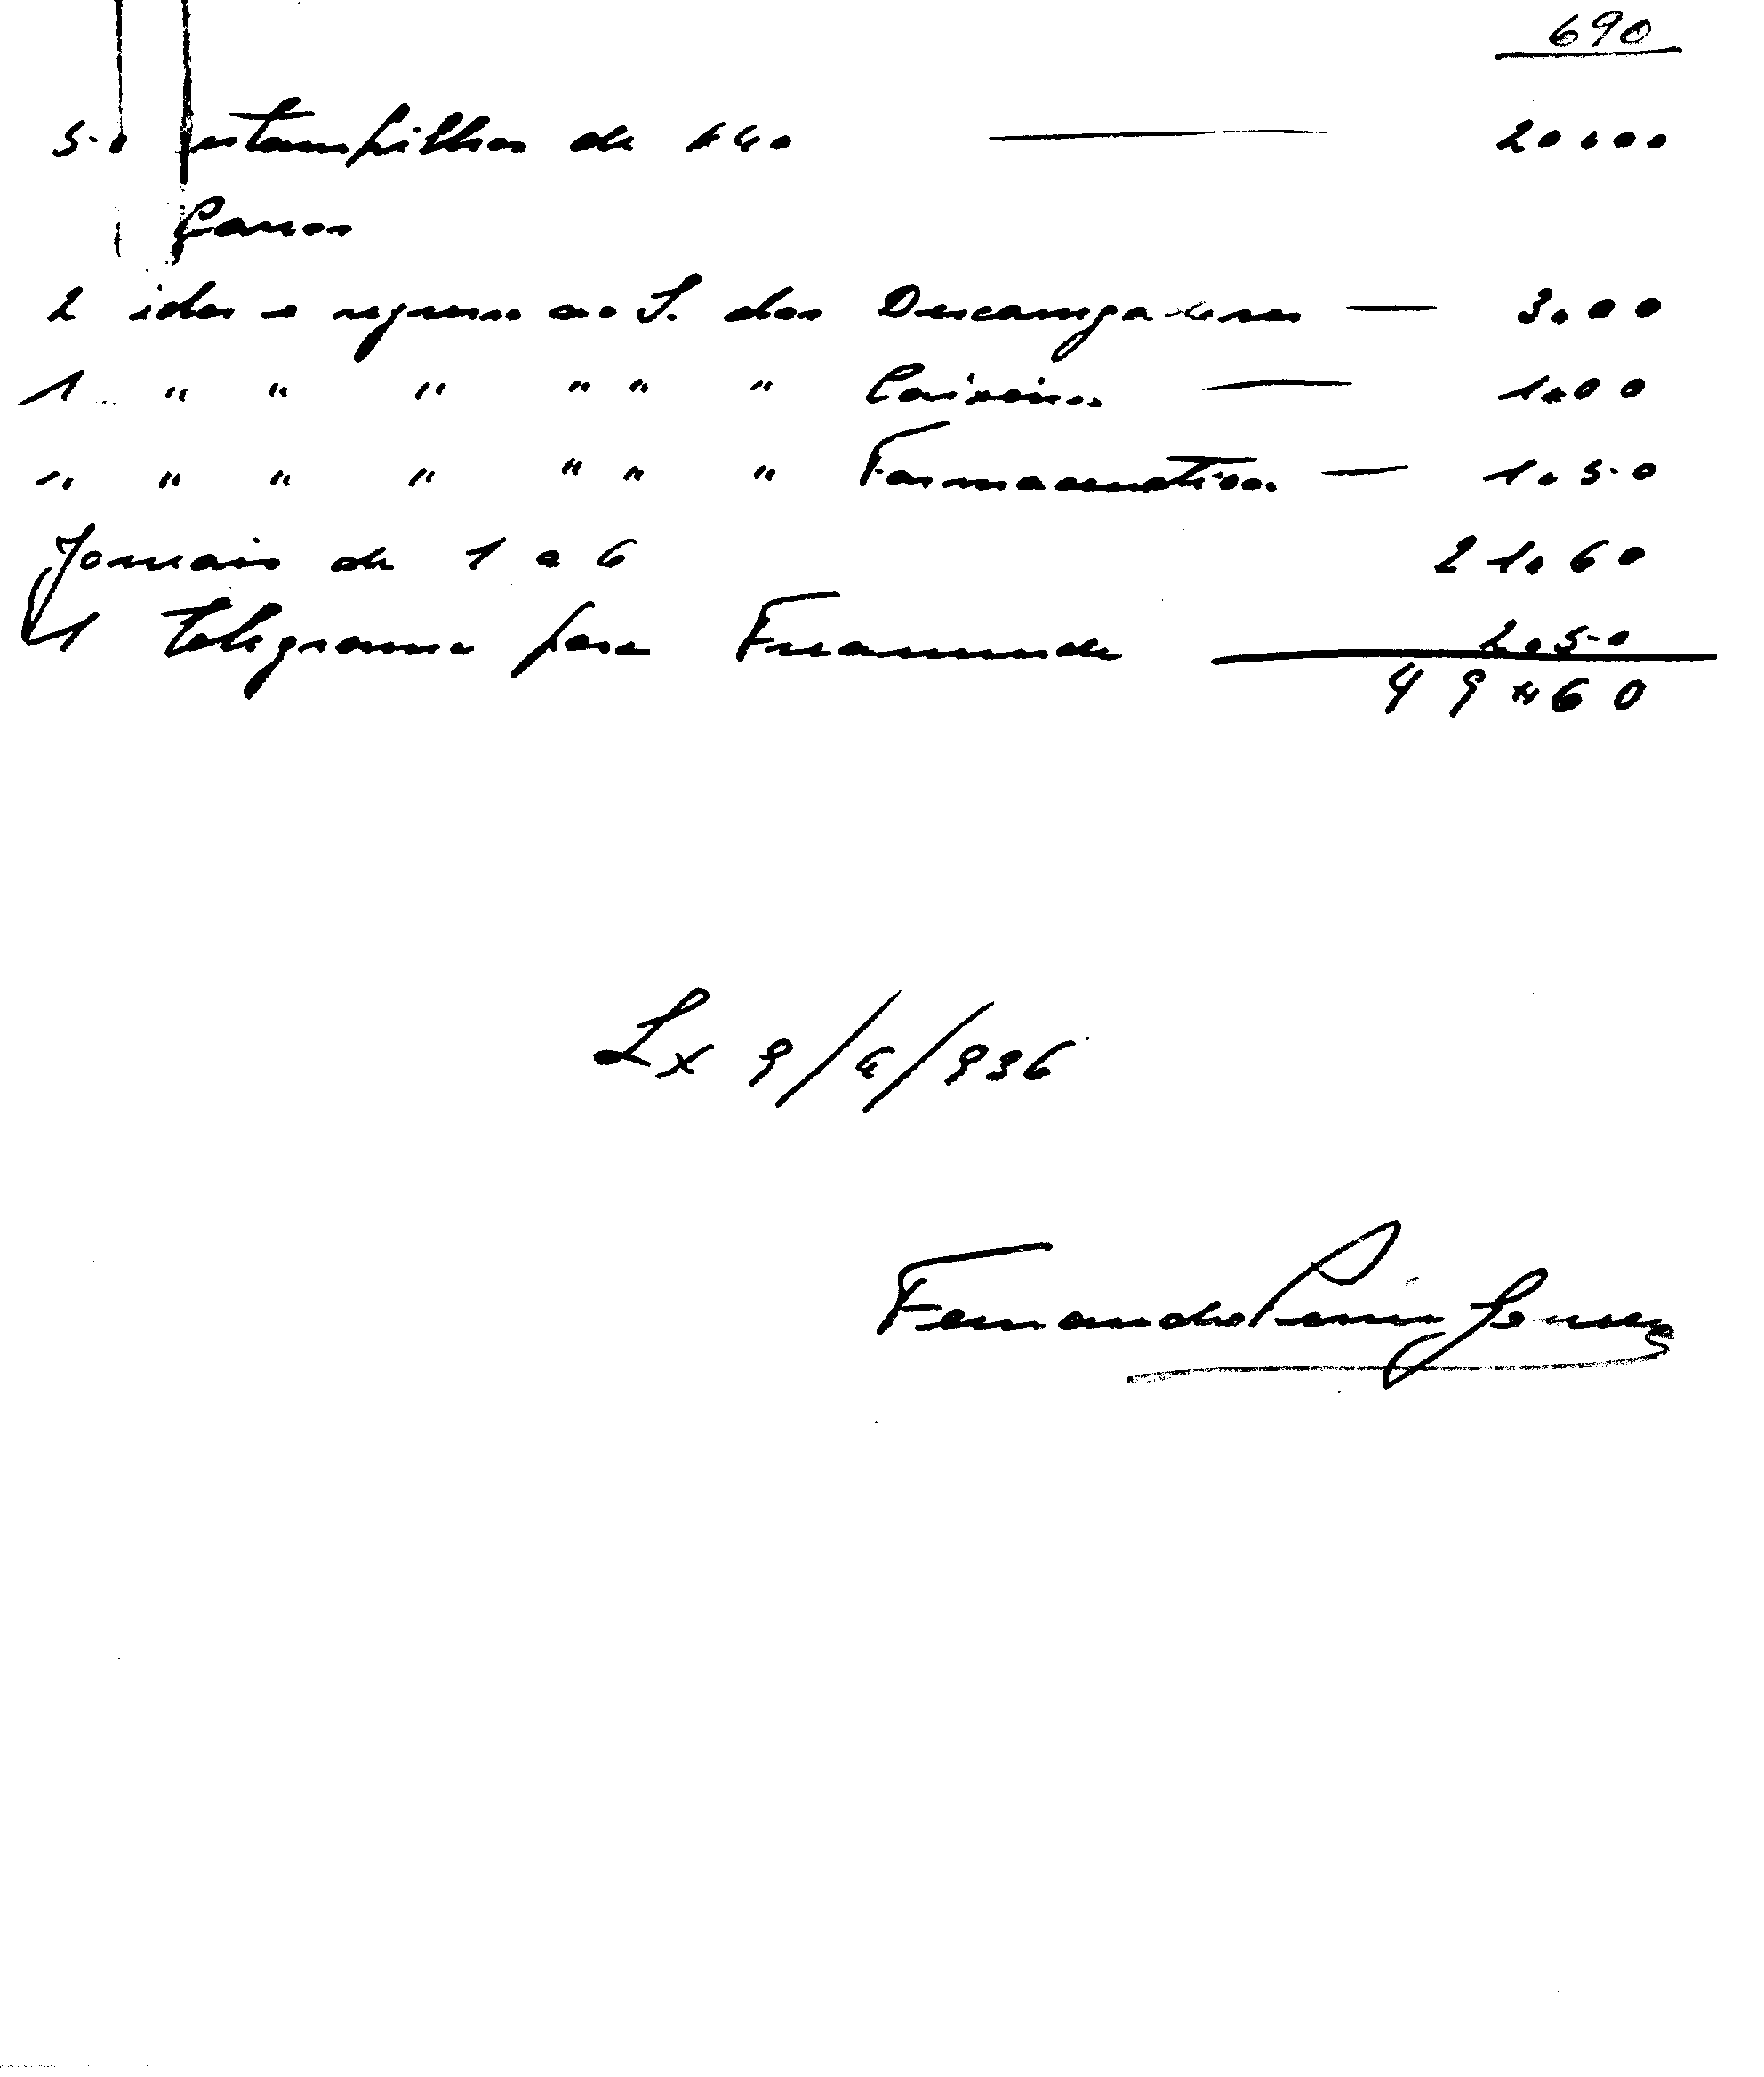 690
50 estampilhas de $40 — 20$00
Carros
2 idas e regresso ao S. dos Descarregadores — 3$00
1 " " " " " " Caixeiros — 1$00
1 " " " " " " Farmaceuticos — 1$50
Jornais de 1 a 6 21$60
1 Telegrama para Freamunde 2$50
49$60
Lx 9/4/936
Fernando